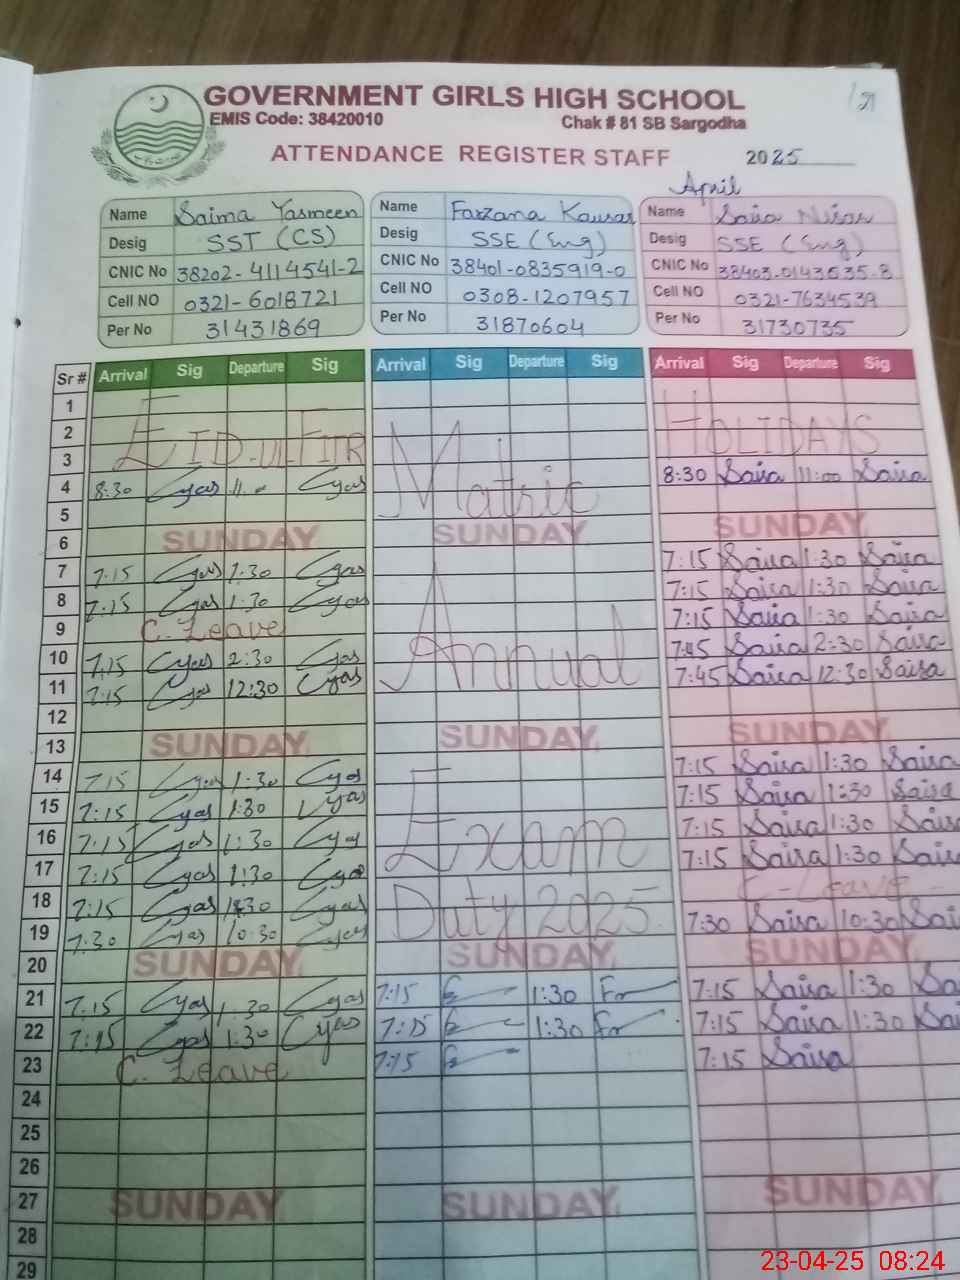 GOVERNMENT GIRLS HIGH SCHOOL
EMIS Code: 38420010 Chak # 81 SB Sargodha
ATTENDANCE REGISTER STAFF 2025
April
Name Saima Yasmeen Name Farzana Kausar Name Saira Nisar
Desig SST (CS) Desig SSE (Eng) Desig SSE (Eng)
CNIC No 38202-4114541-2 CNIC No 38401-0835919-0 CNIC No 38403-0143535-8
Cell NO 0321-6018721 Cell NO 0308-1207957 Cell NO 0321-7634539
Per No 31431869 Per No 31870604 Per No 31730735
Sr # Arrival Sig Departure Sig Arrival Sig Departure Sig Arrival Sig Departure Sig
1
2 EID-UL FITR HOLIDAYS
3 Matric
4 8:30 11:00 8:30 Saira 11:00 Saira
5
6 SUNDAY SUNDAY SUNDAY
7 7:15 1:30 7:15 Saira 1:30 Saira
8 7:15 1:30 7:15 Saira 1:30 Saira
9 C. Leave Annual 7:15 Saira 1:30 Saira
10 7:15 2:30 7:45 Saira 2:30 Saira
11 7:15 12:30 7:45 Saira 12:30 Saira
12
13 SUNDAY SUNDAY SUNDAY
14 7:15 1:30 7:15 Saira 1:30 Saira
15 7:15 1:30 7:15 Saira 1:30 Saira
16 7:15 1:30 Exam 7:15 Saira 1:30 Saira
17 7:15 1:30 7:15 Saira 1:30 Saira
18 7:15 1:30 Duty 2025. C-Leave
19 7:30 10:30 7:30 Saira 10:30 Sai
20 SUNDAY SUNDAY SUNDAY
21 7:15 1:30 7:15 1:30 7:15 Saira 1:30 Sa
22 7:15 1:30 7:15 1:30 7:15 Saira 1:30 Sai
23 C. Leave 7:15 7:15 Saira
24
25
26
27 SUNDAY SUNDAY SUNDAY
28
29
23-04-25 08:24